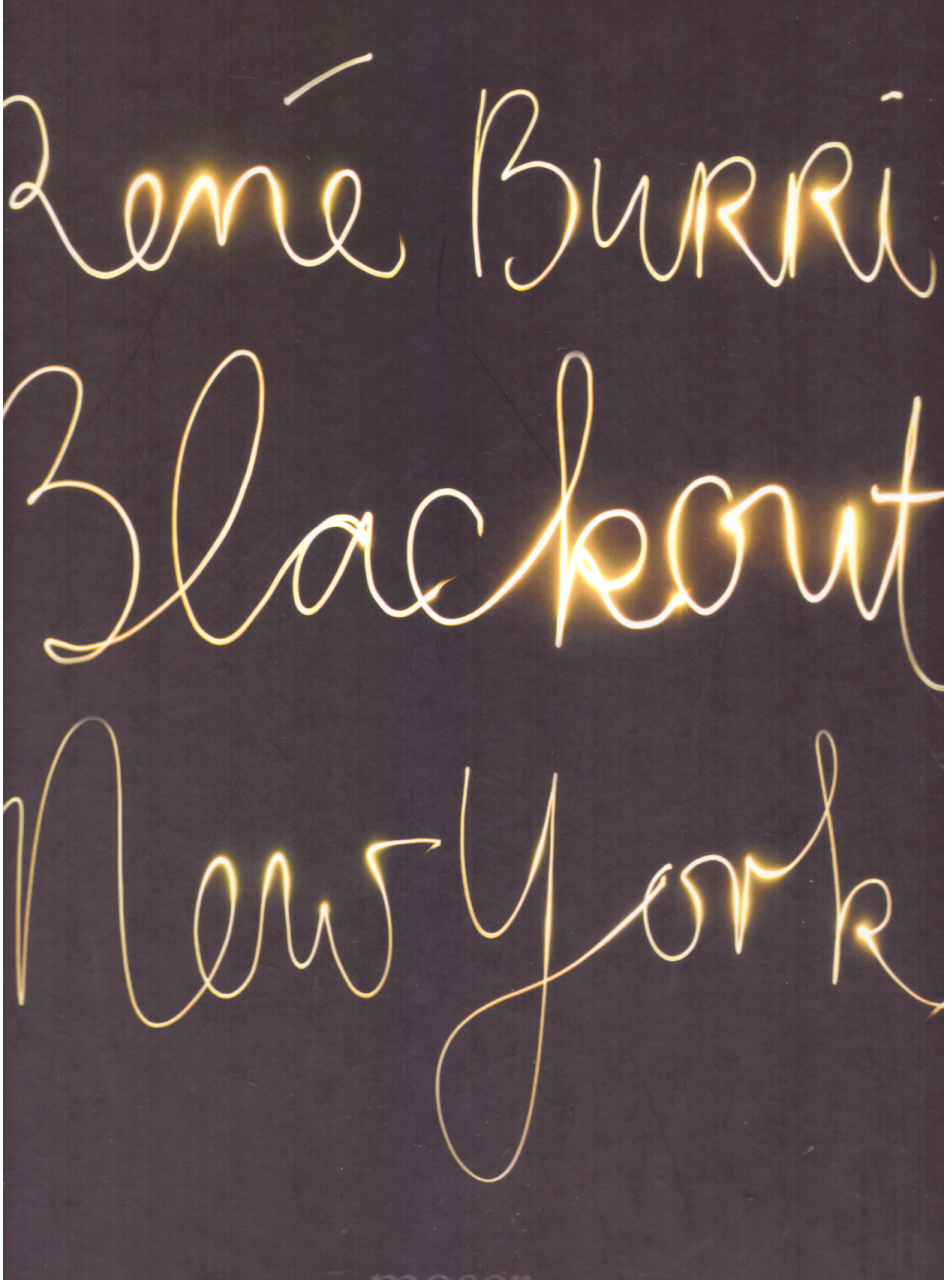 René Burri
Blackout
New York
moser